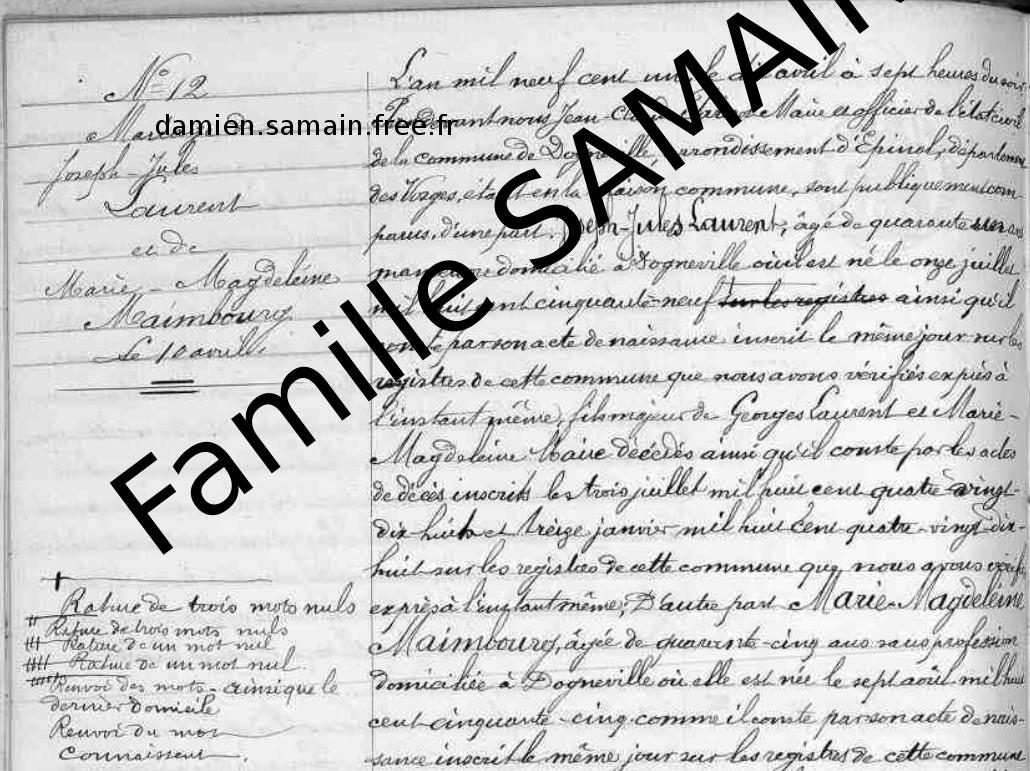 N° 12
Mariage de
Joseph-Jules
Laurent
et de
Marie-Magdeleine
Maimbourg
Le 10 avril
damien.samain.free.fr
Famille SAMAIN
L'an mil neuf cent un le dix avril à sept heures du soir
Pardevant nous Jean-Claude Maire et officier de l'état civil
de la commune de Dogneville, arrondissement d'Epinal, département
des Vosges, étant en la maison commune, sont publiquement com-
parus, d'une part. Joseph-Jules Laurent, âgé de quarante un ans
manœuvre domicilié à Dogneville où il est né le onze juillet
mil huit cent cinquante-neuf sur les registres ainsi qu'il
conste par son acte de naissance inscrit le même jour sur les
registres de cette commune que nous avons vérifiés exprès à
l'instant même, fils majeur de Georges Laurent et Marie-
Magdeleine décédés ainsi qu'il conste par les actes
de décès inscrits les trois juillet mil huit cent quatre-vingt-
dix-huit et treize janvier mil huit cent quatre-vingt-dix-
huit sur les registres de cette commune que nous avons vérifiés
exprès à l'instant même; D'autre part Marie-Magdeleine
Maimbourg, âgée de quarante-cinq ans sans profession
domiciliée à Dogneville où elle est née le sept août mil huit
cent cinquante-cinq comme il conste par son acte de nais-
sance inscrit le même jour sur les registres de cette commune
Rature de trois mots nuls
Rature de trois mots nuls
Rature de un mot nul
Rature de un mot nul.
Renvoi des mots - ainsi que le
dernier domicile
Renvoi du mot
connaissent.